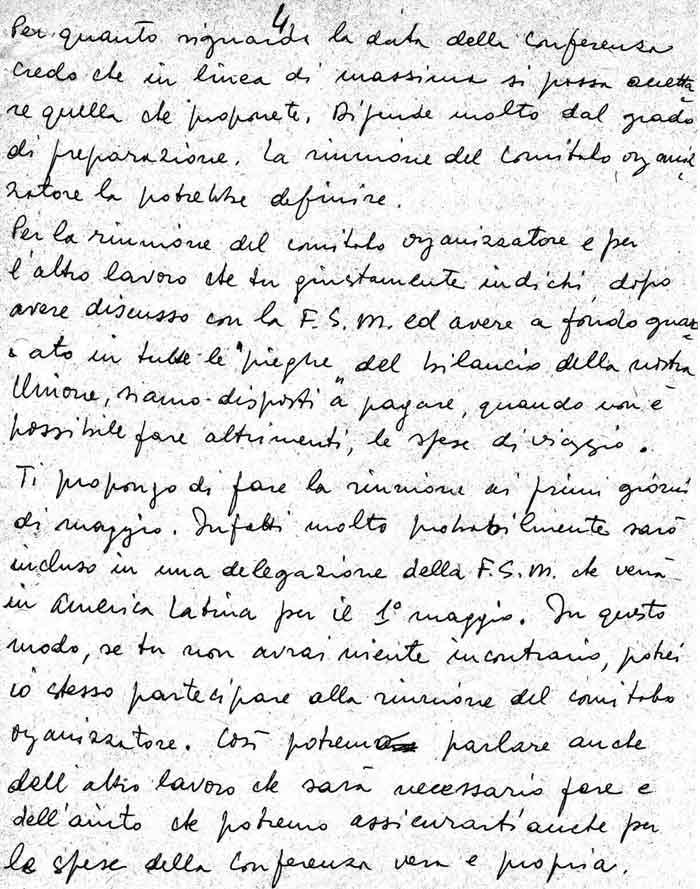 4.
Per quanto riguarda la data della Conferenza
credo che in linea di massima si possa accetta-
re quella che proponete. Dipende molto dal grado
di preparazione. La riunione del Comitato organiz-
zatore la potrebbe definire.
Per la riunione del comitato organizzatore e per
l'altro lavoro che tu giustamente indichi, dopo
avere discusso con la F.S.M. ed avere a fondo guar-
dato in tutte le "pieghe" del bilancio della nostra
Unione, siamo disposti a pagare, quando non è
possibile fare altrimenti, le spese di viaggio.
Ti propongo di fare la riunione ai primi giorni
di maggio. Infatti molto probabilmente sarò
incluso in una delegazione della F.S.M. che verrà
in America Latina per il 1° maggio. In questo
modo, se tu non avrai niente in contrario, potrei
io stesso partecipare alla riunione del comitato
organizzatore. Così potremo parlare anche
dell'altro lavoro che sarà necessario fare e
dell'aiuto che potremo assicurarti anche per
le spese della Conferenza vera e propria.